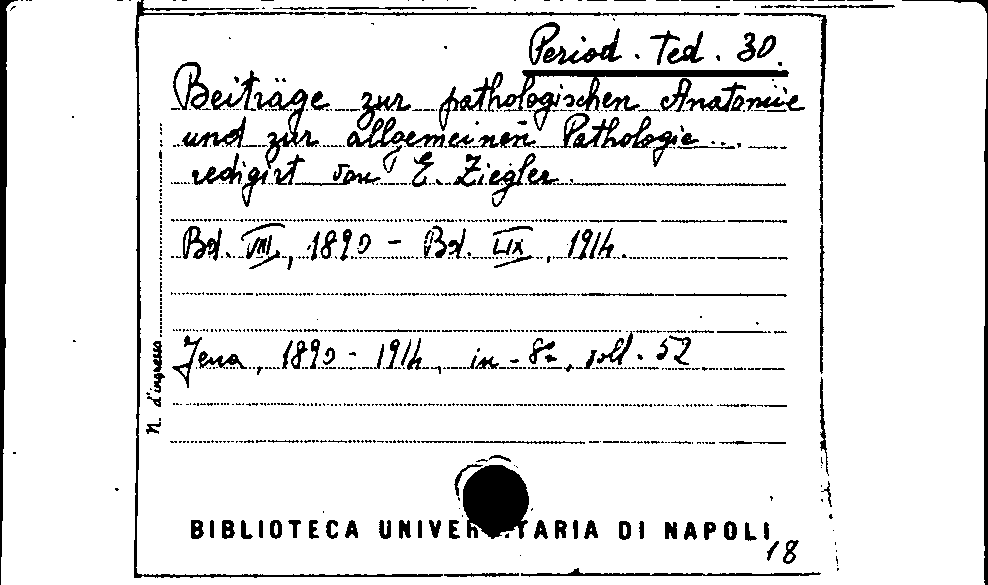 Period. Ted. 30.
Beiträge zur pathologischen Anatomie
und zur allgemeinen Pathologie...
redigirt von E. Ziegler.
Bd. VIII, 1890 - Bd. LIX, 1914.
N. d'ingresso
Jena, 1890 - 1914, in-8º, voll. 52
BIBLIOTECA UNIVERSITARIA DI NAPOLI
18